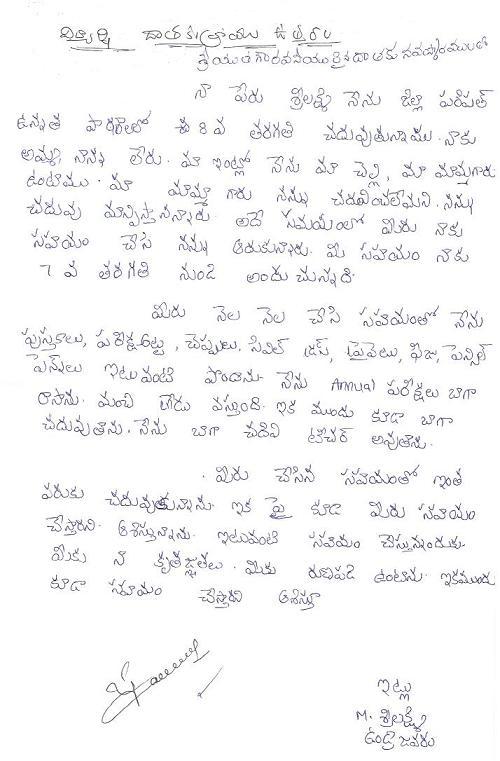 విద్యార్ధి దాతకు వ్రాయు ఉత్తరం
శ్రీయుత గౌరవనీయులైన దాతకు నమస్కారములతో
నా పేరు శ్రీలక్ష్మి నేను జిల్లా పరిషత్
ఉన్నత పాఠశాలలో 8 వ తరగతి చదువుతున్నాను. నాకు
అమ్మ, నాన్న లేరు. మా ఇంట్లో నేను మా చెల్లి, మా మామ్మగారు
ఉంటాము. మా మామ్మ గారు నన్ను చదివించలేమని. నన్ను
చదువు మాన్పిస్తానన్నారు. అదే సమయంలో మీరు నాకు
సహాయం చేసి నన్ను ఆదుకున్నారు. మీ సహాయం నాకు
7 వ తరగతి నుండి అందుచున్నది.
మీరు నెల నెల చేసే సహాయంతో నేను
పుస్తకాలు, పరీక్ష అట్ట, చెప్పులు, సివిల్ డ్రస్, ఫీజు, పెన్సిల్
పెన్నులు ఇటువంటి పొందాను. నేను Annual పరీక్షలు బాగా
రాసాను. మంచి గ్రేడు వస్తుంది. ఇక ముందు కూడా బాగా
చదువుతాను. నేను బాగా చదివి టీచర్ అవుతాను.
మీరు చేసిన సహాయంతో ఇంత
వరకు చదువుతున్నాను. ఇక పై కూడా మీరు సహాయం
చేస్తారని ఆశిస్తున్నాను. ఇటువంటి సహాయం చేస్తున్నందుకు
మీకు నా కృతజ్ఞతలు. మీకు రుణపడి ఉంటాను. ఇకముందు
కూడా సహాయం చేస్తారని ఆశిస్తూ
ఇట్లు
M. శ్రీలక్ష్మి
ఉండ్రాజవరం